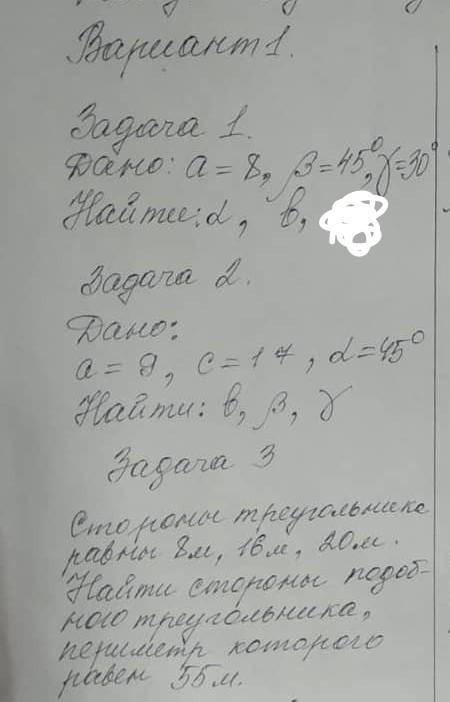 Вариант 1.
Задача 1.
Дано: a = 8, β = 45°, γ = 30°
Найти: α, в,
Задача 2.
Дано:
a = 9, c = 17, α = 45°
Найти: в, β, γ
Задача 3
Стороны треугольника
равны 8м, 16м, 20м.
Найти стороны подоб-
ного треугольника,
периметр которого
равен 55м.